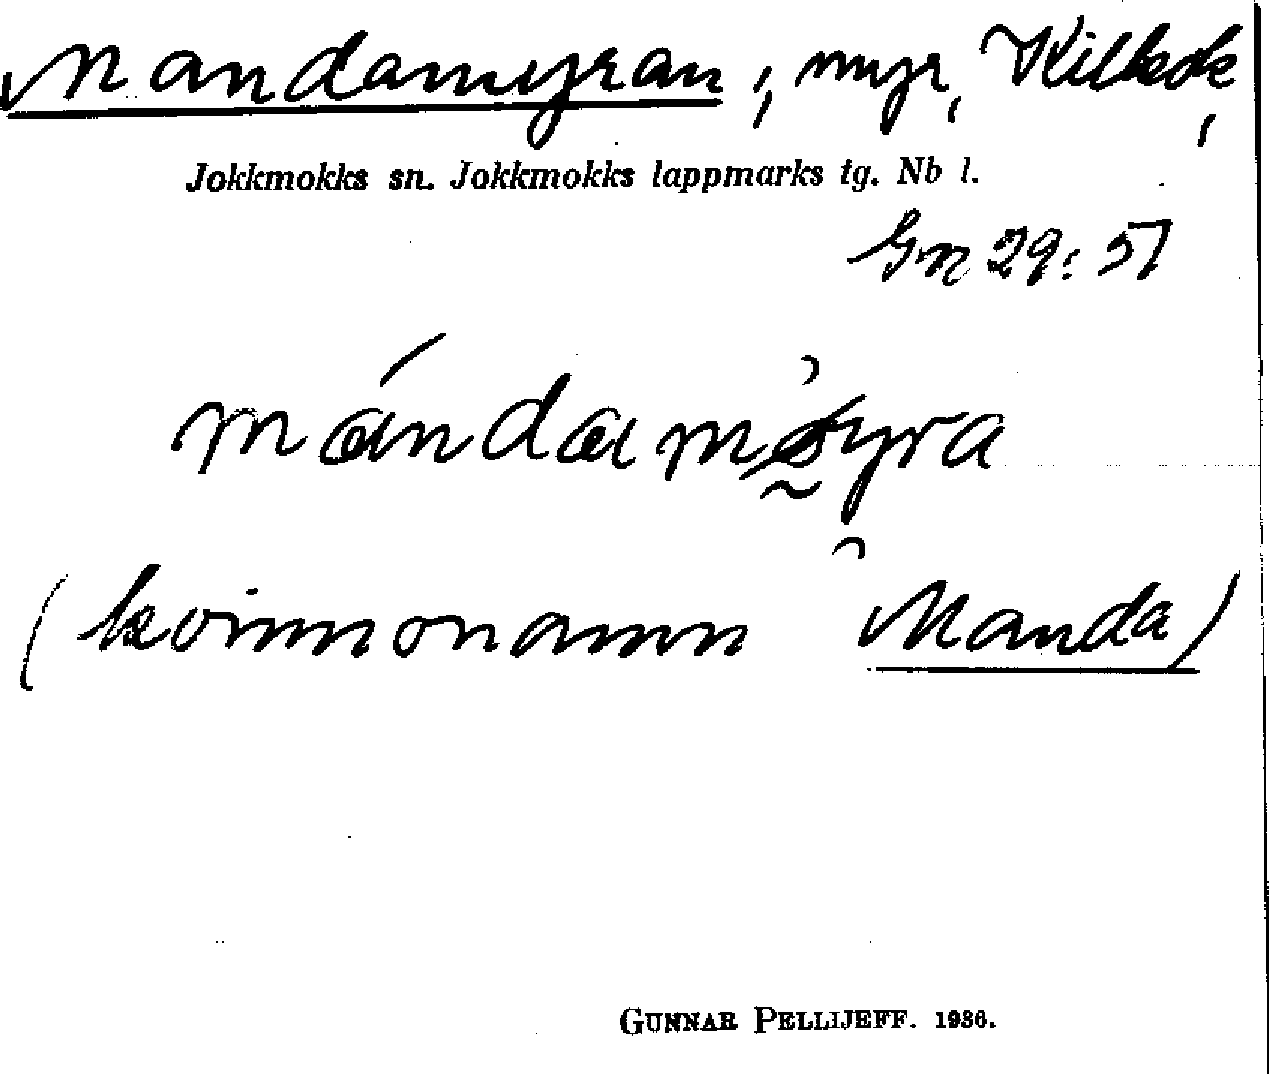 Mandamyran, myr, Killeok,
Jokkmokks sn. Jokkmokks lappmarks tg. Nb l.
Gn 29: 57
mándamyra
(kvinnonamn Manda)
GUNNAR PELLIJEFF. 1936.